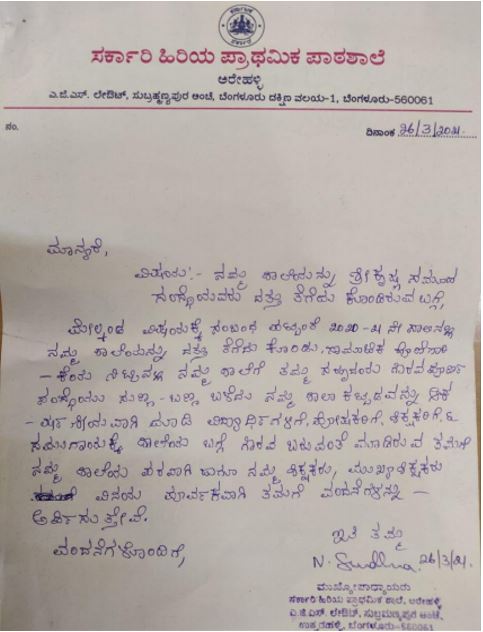 ಸರ್ಕಾರಿ ಹಿರಿಯ ಪ್ರಾಥಮಿಕ ಪಾಠಶಾಲೆ
ಅರೇಹಳ್ಳಿ
ಎ.ಜಿ.ಎಸ್. ಲೇಔಟ್, ಸುಬ್ರಹ್ಮಣ್ಯಪುರ ಅಂಚೆ, ಬೆಂಗಳೂರು ದಕ್ಷಿಣ ವಲಯ-1, ಬೆಂಗಳೂರು-560061
ನಂ. ದಿನಾಂಕ 26/3/2021
ಮಾನ್ಯರೆ,
ವಿಷಯ:- ನಮ್ಮ ಶಾಲೆಯನ್ನು ಶ್ರೀಕೃಷ್ಣ
ಸಂಸ್ಥೆಯವರು ದತ್ತು ತೆಗೆದು ಕೊಂಡಿರುವ ಬಗ್ಗೆ,
ಮೇಲ್ಕಂಡ ವಿಷಯಕ್ಕೆ ಸಂಬಂಧ 2020-21 ನೇ ಸಾಲಿನಲ್ಲಿ
ನಮ್ಮ ಶಾಲೆಯನ್ನು ದತ್ತು ತೆಗೆದು ಕೊಂಡು,
ನಮ್ಮ ಶಾಲೆಗೆ ತಮ್ಮ
ಸಂಸ್ಥೆಯು ಸುಣ್ಣ-ಬಣ್ಣ ಬಳಿದು ನಮ್ಮ ಶಾಲಾ ಕಟ್ಟಡವನ್ನು ಆಕ
-ರ್ಷಣೀಯವಾಗಿ ಮಾಡಿ ವಿದ್ಯಾರ್ಥಿಗಳಿಗೆ, ಪೋಷಕರಿಗೆ, ಶಿಕ್ಷಕರಿಗೆ, &
ಸಮುದಾಯಕ್ಕೆ ಶಾಲೆಯ ಬಗ್ಗೆ ಗೌರವ ಬರುವಂತೆ ಮಾಡಿರುವ ತಮಗೆ
ನಮ್ಮ ಶಾಲೆಯ ಪರವಾಗಿ ಹಾಗೂ ನಮ್ಮ ಶಿಕ್ಷಕರು, ಮುಖ್ಯಶಿಕ್ಷಕರು
ವಿನಯ ಪೂರ್ವಕವಾಗಿ ತಮಗೆ ವಂದನೆಗಳನ್ನು -
ಅರ್ಪಿಸುತ್ತೇವೆ.
ವಂದನೆಗಳೊಂದಿಗೆ,
ಇತಿ ತಮ್ಮ
26/3/21.
ಮುಖ್ಯೋಪಾಧ್ಯಾಯರು
ಸರ್ಕಾರಿ ಹಿರಿಯ ಪ್ರಾಥಮಿಕ ಶಾಲೆ, ಅರೇಹಳ್ಳಿ
ಎ.ಜಿ.ಎಸ್. ಲೇಔಟ್, ಸುಬ್ರಮಣ್ಯಪುರ ಅಂಚೆ,
ಉತ್ತರಹಳ್ಳಿ, ಬೆಂಗಳೂರು-560061